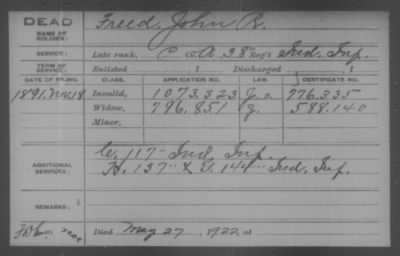 DEAD
NAME OF SOLDIER: Freed, John R.
SERVICE: Late rank, Co. A, 38" Reg't Ind. Inf.
TERM OF SERVICE: Enlisted , 1 Discharged , 1
DATE OF FILING. CLASS. APPLICATION NO. CERTIFICATE NO.
1891. Nov. 18 Invalid, 1073.323 J.a. 776.335
Widow, 796.851 J. 588.140
Minor,
ADDITIONAL SERVICES: C. 117" Ind. Inf.
H. 137" & G. 144" Ind. Inf.
REMARKS:
Died May 27, 1922 at